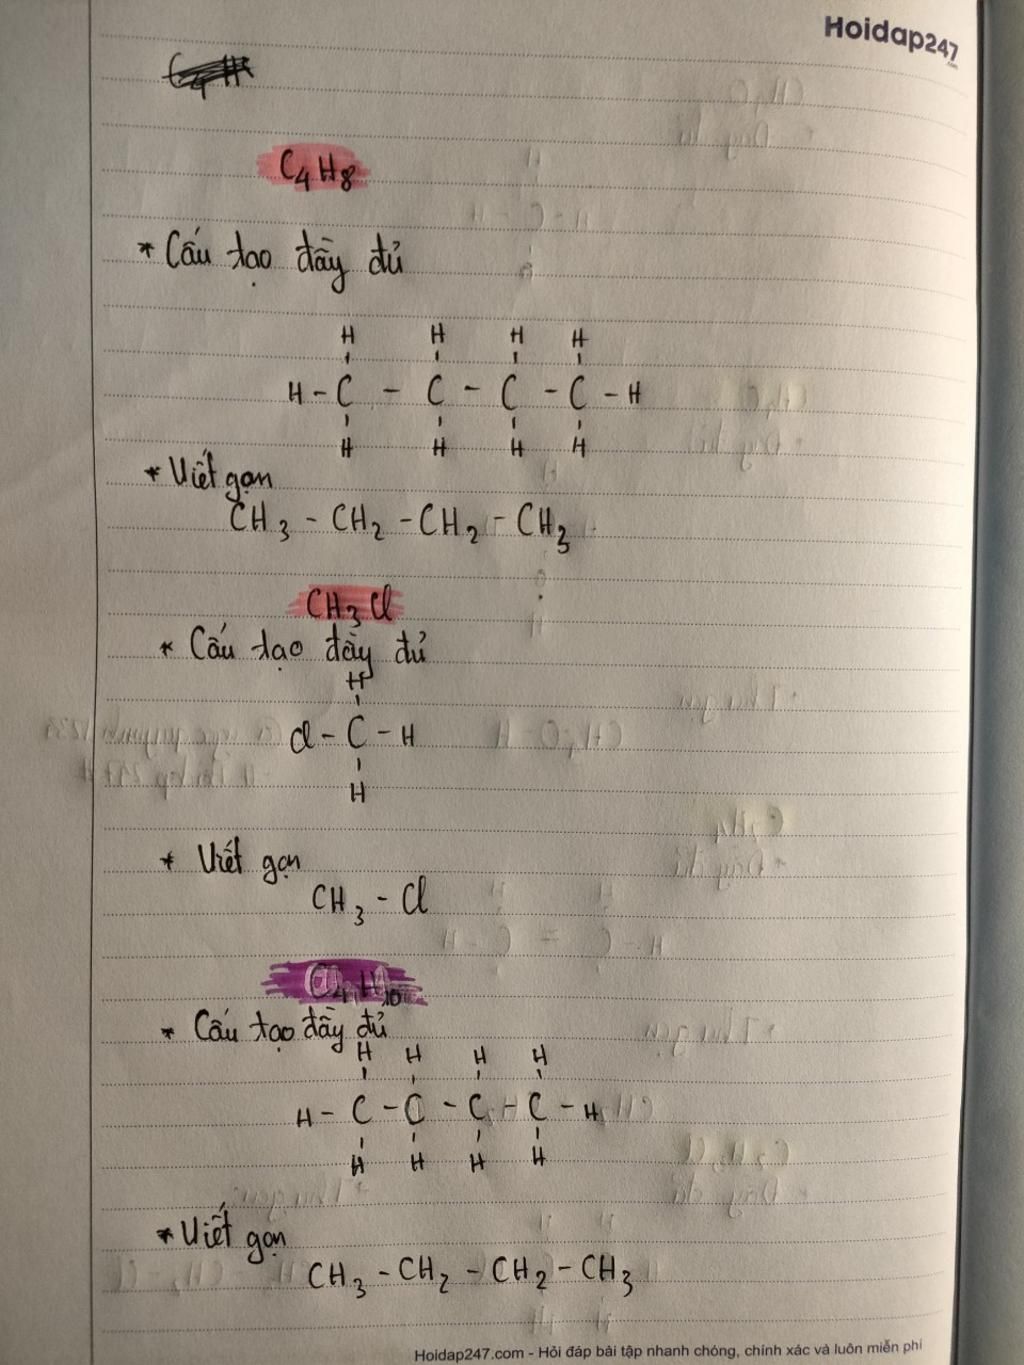 Hoidap247
.com
C₄H₈
* Cấu tạo đầy đủ
H H H H
H - C - C - C - C - H
H H H H
* Viết gọn
CH₃ - CH₂ - CH₂ - CH₃
CH₃Cl
* Cấu tạo đầy đủ
H
Cl - C - H
H
* Viết gọn
CH₃ - Cl
C₄H₁₀
* Cấu tạo đầy đủ
H H H H
H - C - C - C - C - H
H H H H
* Viết gọn
CH₃ - CH₂ - CH₂ - CH₃
Hoidap247.com - Hỏi đáp bài tập nhanh chóng, chính xác và luôn miễn phí